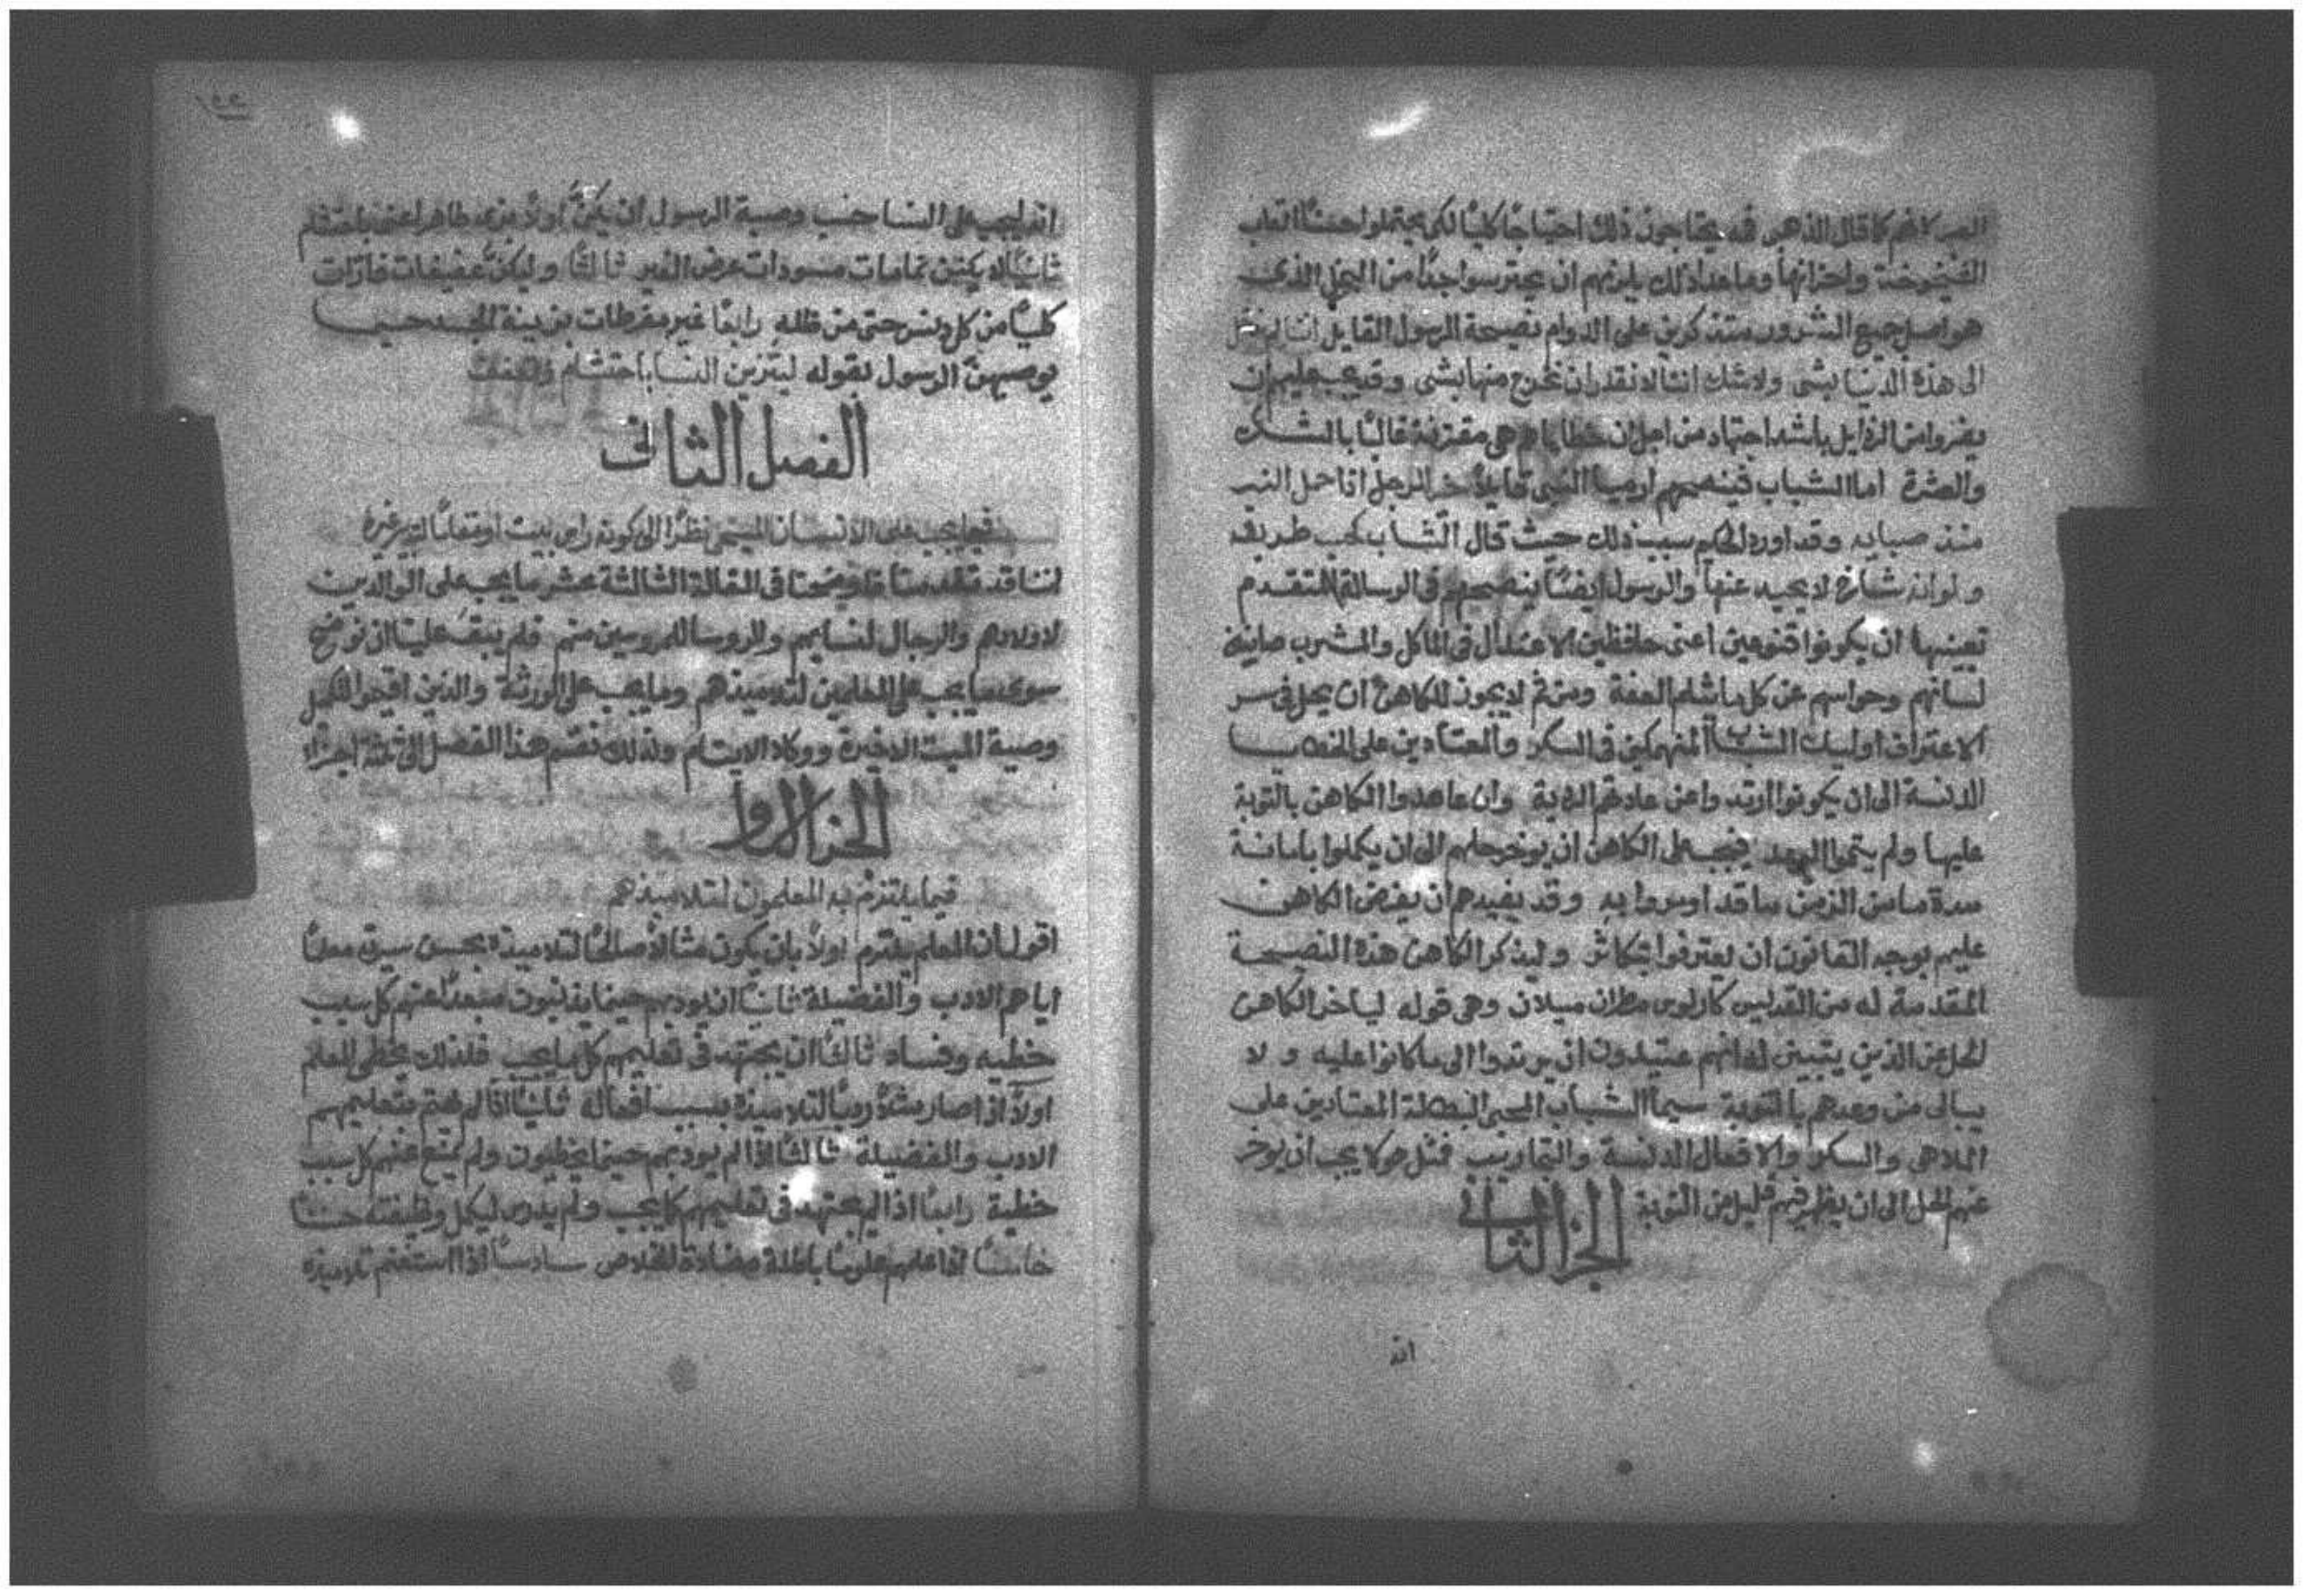 الصبر لانهم كما قال الذهبى فمه يحتاجون ذلك احتياجًا كليًا لكى يحتملوا حسنًا اتعاب
الشيخوخة واحزانها وما عدا ذلك يلزمهم ان يحترسوا جدًا من البخل الذى
هو اصل جميع الشرور متذكرين على الدوام نصيحة الرسول القايل اننا لم ندخل
الى هذه الدنيا بشى ولا شك اننا لا نقدر ان نخرج منها بشى وقد يجب عليهم ان
يفروا من الرذايل باشد اجتهاد من اجل ان خطاياهم هى مقترنة غالبًا بالشك
والعثرة اما الشباب فينصحهم ارميا النبى قايلا خير للرجل اذا حمل النير
منذ صبايه وقد اورد الحكيم سبب ذلك حيث قال الشاب يحب طريقه
ولو انه شاخ لا يحيد عنها والرسول ايضًا ينصحهم فى الرسالة المتقدم
تعيينها ان يكونوا قنوعين اعنى حافظين الاعتدال فى الماكل والمشرب صاينين
لسانهم وحواسهم عن كل ما يثلم العفة ومن ثم لا يجوز للكاهن ان يحل فى سر
الاعتراف اوليك الشباب المنهمكين فى السكر والمعتادين على الخطايا
الدنسة الى ان يكونوا ارتدوا عن عادتهم الردية وان عاهدوا الكاهن بالتوبة
عليها ولم يتموا العهد فيجب على الكاهن ان يوخر حلهم الى ان يكملوا بامانة
مدة ما من الزمن ما قد اومروا به وقد يفيدهم ان يفرض الكاهن
عليهم بوجه القانون ان يعترفوا بتكاثر وليذكر الكاهن هذه النصيحة
المقدمة له من القديس كارلوس مطران ميلان وهى قوله ليأخر الكاهن
الحل عن الذين يتبين له انهم عتيدون ان يرتدوا الى ما كانوا عليه ولا
يبالى من وعدهم بالتوبة سيما الشباب المحبى البطالة المعتادين على
الملاهى والسكر والافعال الدنسة والتجاديف فمثل هولا يجب ان يوخر
عنهم الحل الى ان يظهر فيهم قليل من التوبة
الجزء الثانى
انه
انه يجب على النسا حسب وصية الرسول ان يكنّ اولاً بزى طاهر اعنى باحتشام
ثانيًا لا يكنن نمامات مسودات عرض الغير ثالثًا وليكنّ عفيفات فارّات
كليًا من كل دنس حتى من ظله رابعًا غير مفرطات بزينة الجسد حسبما
يوصيهنّ الرسول بقوله ليتزين النسا باحتشام وتعفف
الفصل الثانى
فيما يجب على الانسان المسيحى نظرًا الى كونه راس بيت او معلمًا لغيره
اننا قد قدمنا واوضحنا فى المقالة الثالثة عشر ما يجب على الوالدين
لاولادهم والرجال لنسايهم وللروسا للمروسين منهم فلم يبقَ علينا ان نوضح
سوى ما يجب على المعلمين لتلاميذهم وما يجب على الورثة والذين اقيموا لتكميل
وصية الميت الاخيرة ووكلا الايتام ولذلك نقسم هذا الفصل الى ثلثة اجزا
الجزء الاول
فيما يلتزم به المعلمون لتلاميذهم
اقول ان المعلم يلتزم اولاً بان يكون مثالاً صالحًا لتلاميذه بحسن سيرته معلمًا
اياهم الادب والفضيلة ثانيًا ان يودبهم حينما يذنبون مبعدًا عنهم كل سبب
خطيه وفساد ثالثًا ان يجتهد فى تعليمهم كل ما يجب فلذلك يخطى المعلم
اولاً اذا صار مشكًا روحيًا لتلاميذه بسبب افعاله ثانيًا اذا لم يهتم بتعليمهم
الادب والفضيلة ثالثًا اذا لم يودبهم حينما يخطيون ولم يمنع عنهم كل سبب
خطية رابعًا اذا لم يجتهد فى تعليمهم كما يجب ولم يدرس ليكمل وظيفته حسنًا
خامسًا اذا علمهم علومًا باطلة مضادة للخلاص سادسًا اذا استخدم تلاميذه